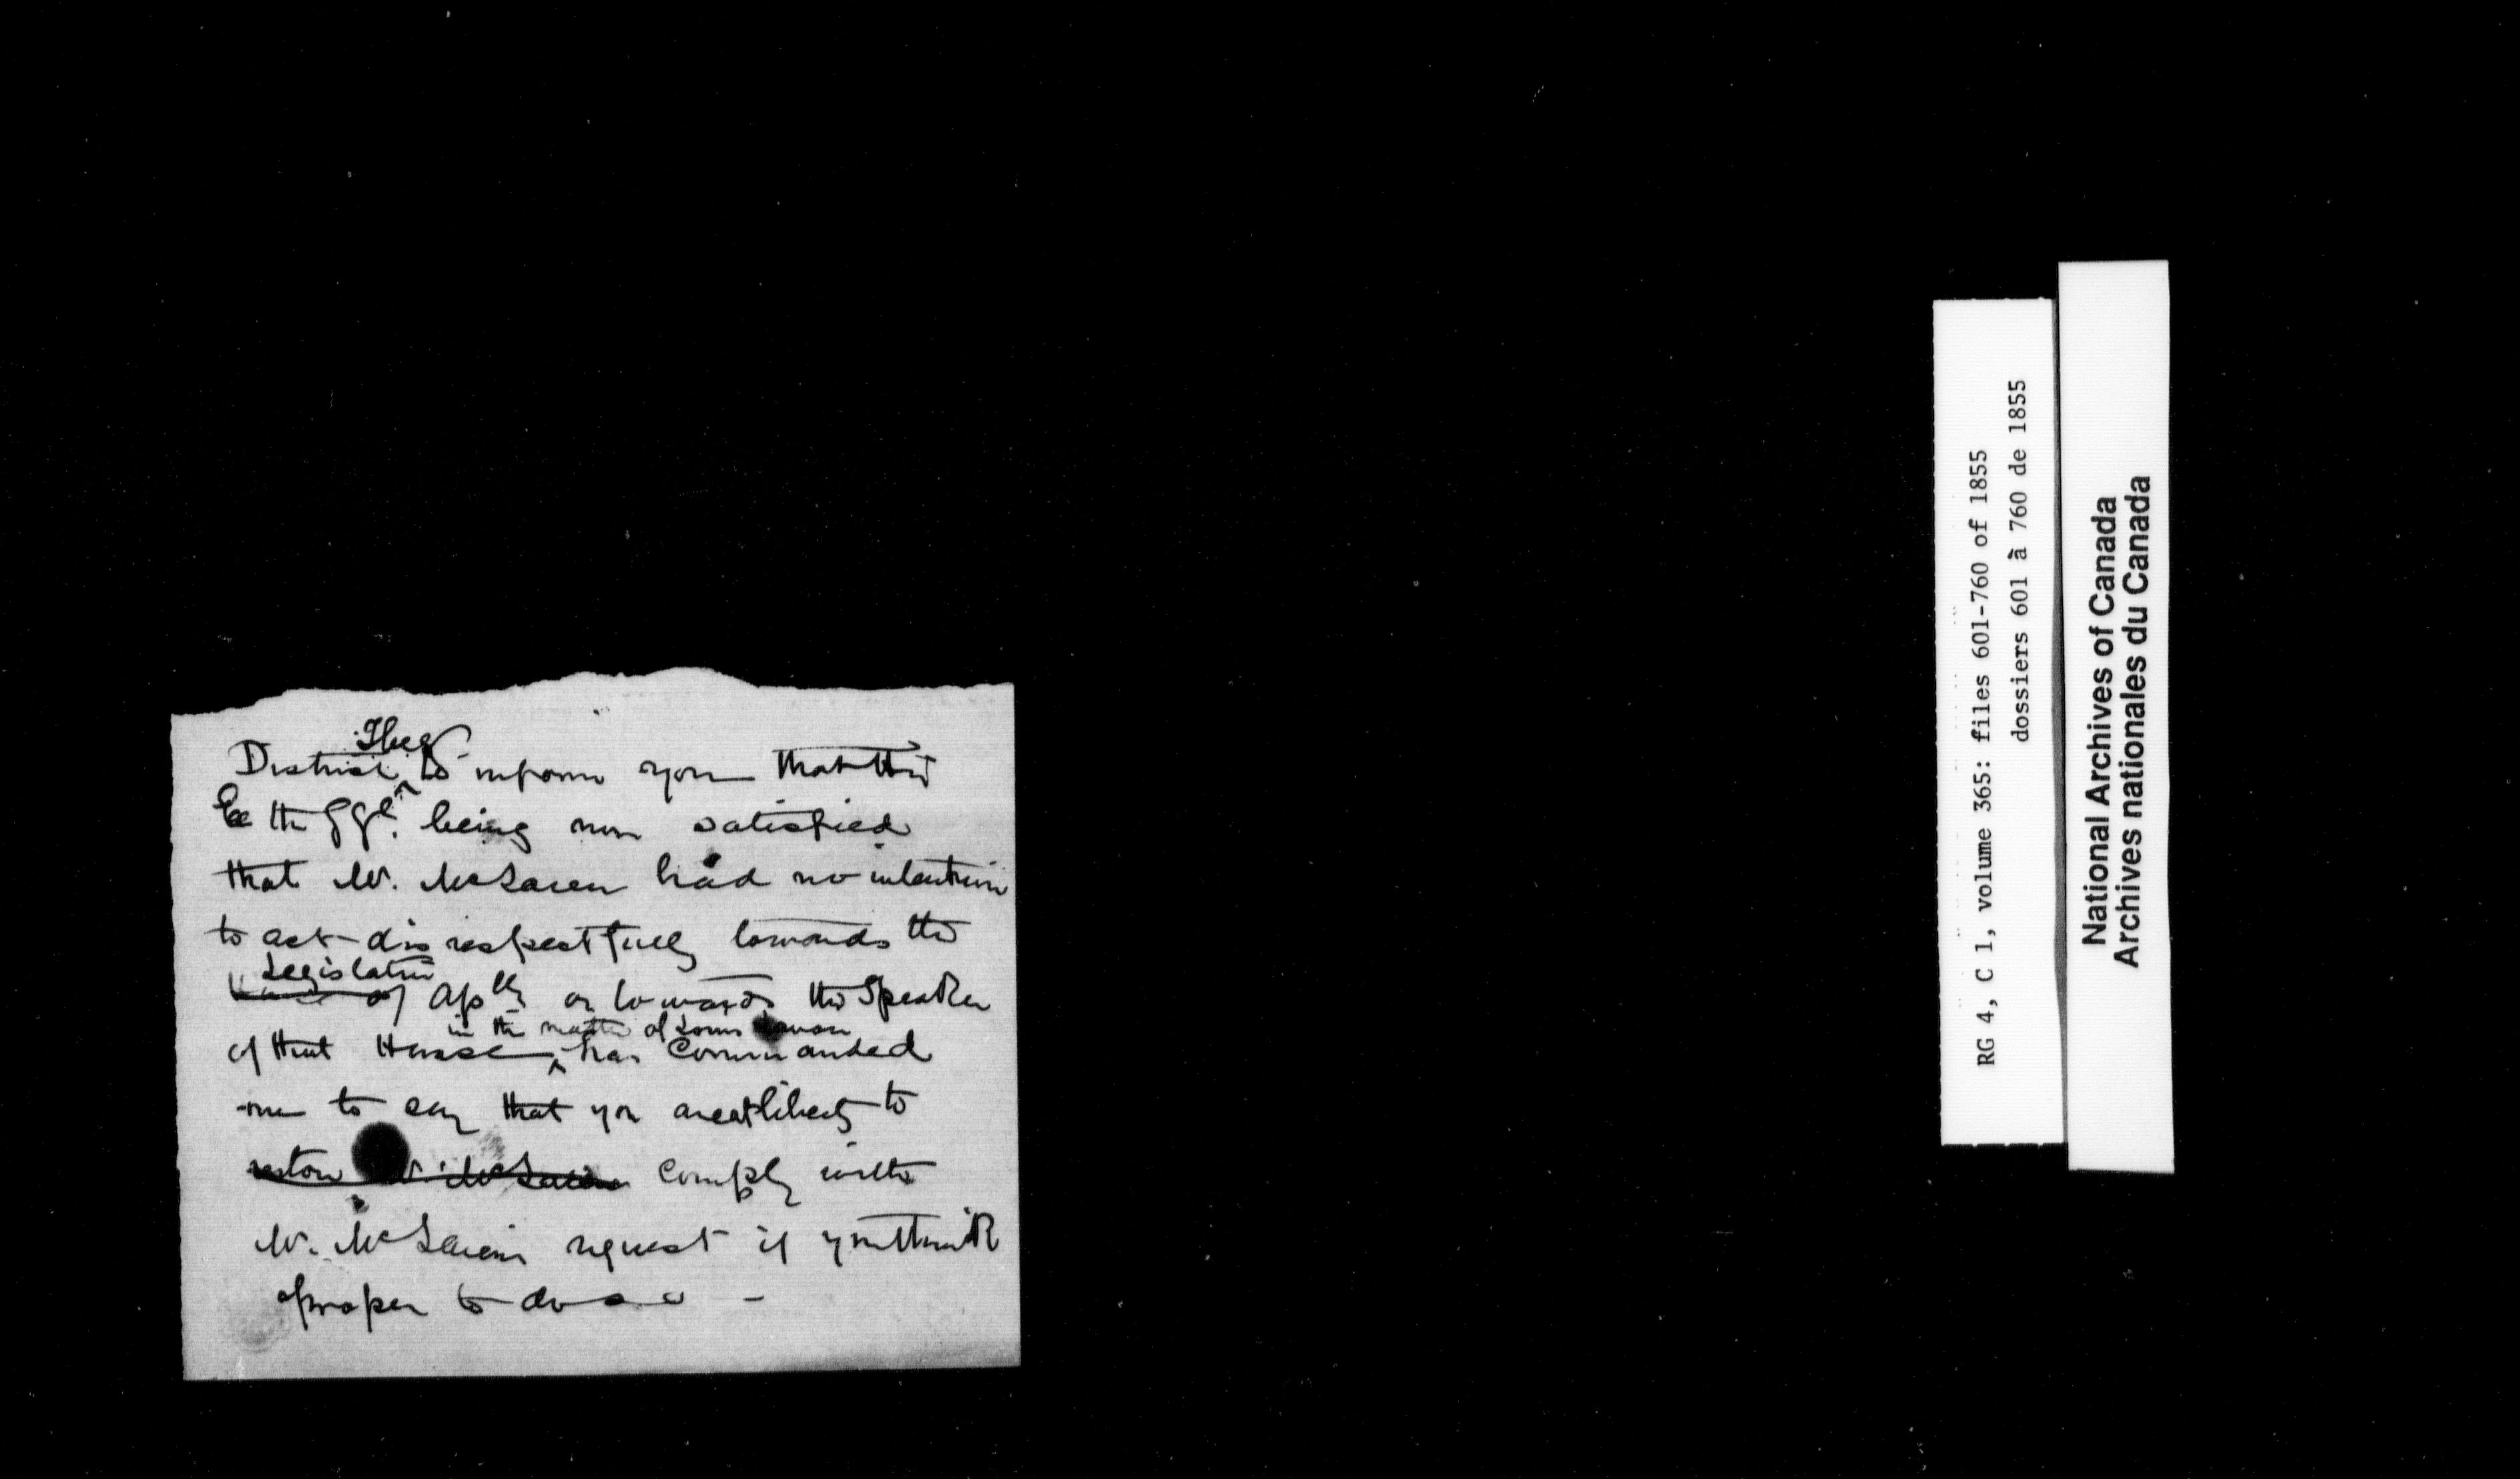 I beg
District to inform you that His
Ex the G Gl. being now satisfied
that Mr. McLaren had no intention
to act disrespectfully towards the
Legislative
House of Assbly or towards the Speaker
in the matter of Louis
of that House has Commanded
me to say that you are at liberty to
restore Mr. McLaren comply with
Mr. McLaren's request if you think
proper to do so -
RG 4, C 1, volume 365: files 601-760 of 1855
dossiers 601 à 760 de 1855
National Archives of Canada
Archives nationales du Canada